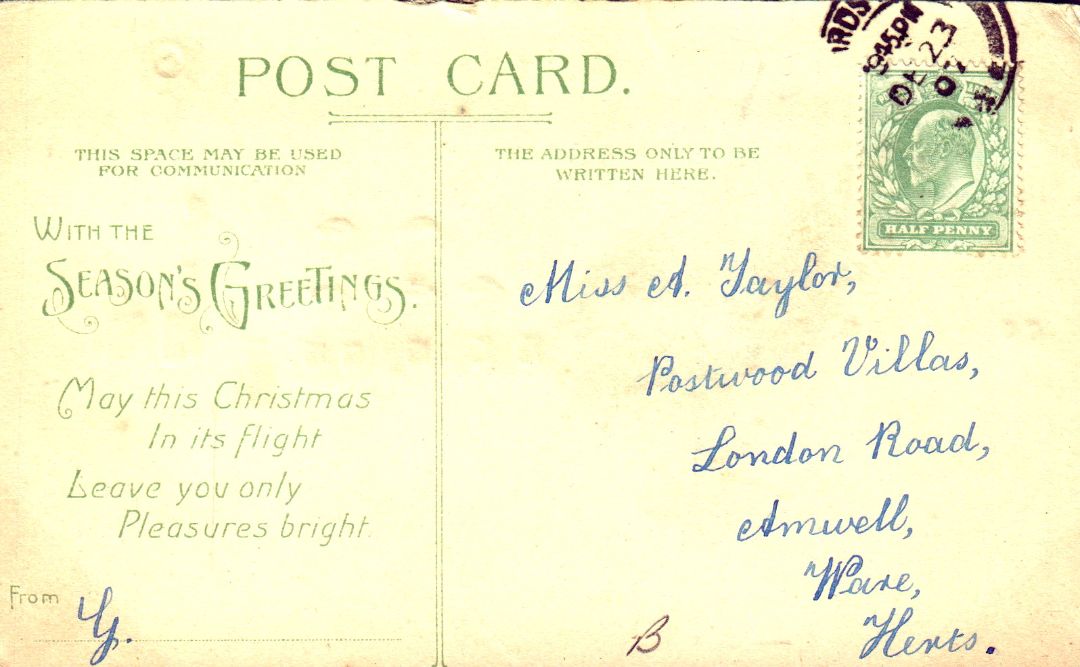 POST CARD.
THIS SPACE MAY BE USED
FOR COMMUNICATION
THE ADDRESS ONLY TO BE
WRITTEN HERE.
WITH THE
SEASON'S GREETINGS.
May this Christmas
In its flight
Leave you only
Pleasures bright.
From
G.
9.45PM
DE 23
07
HALF PENNY
Miss A. Taylor,
Postwood Villas,
London Road,
Amwell,
Ware,
Herts.
B